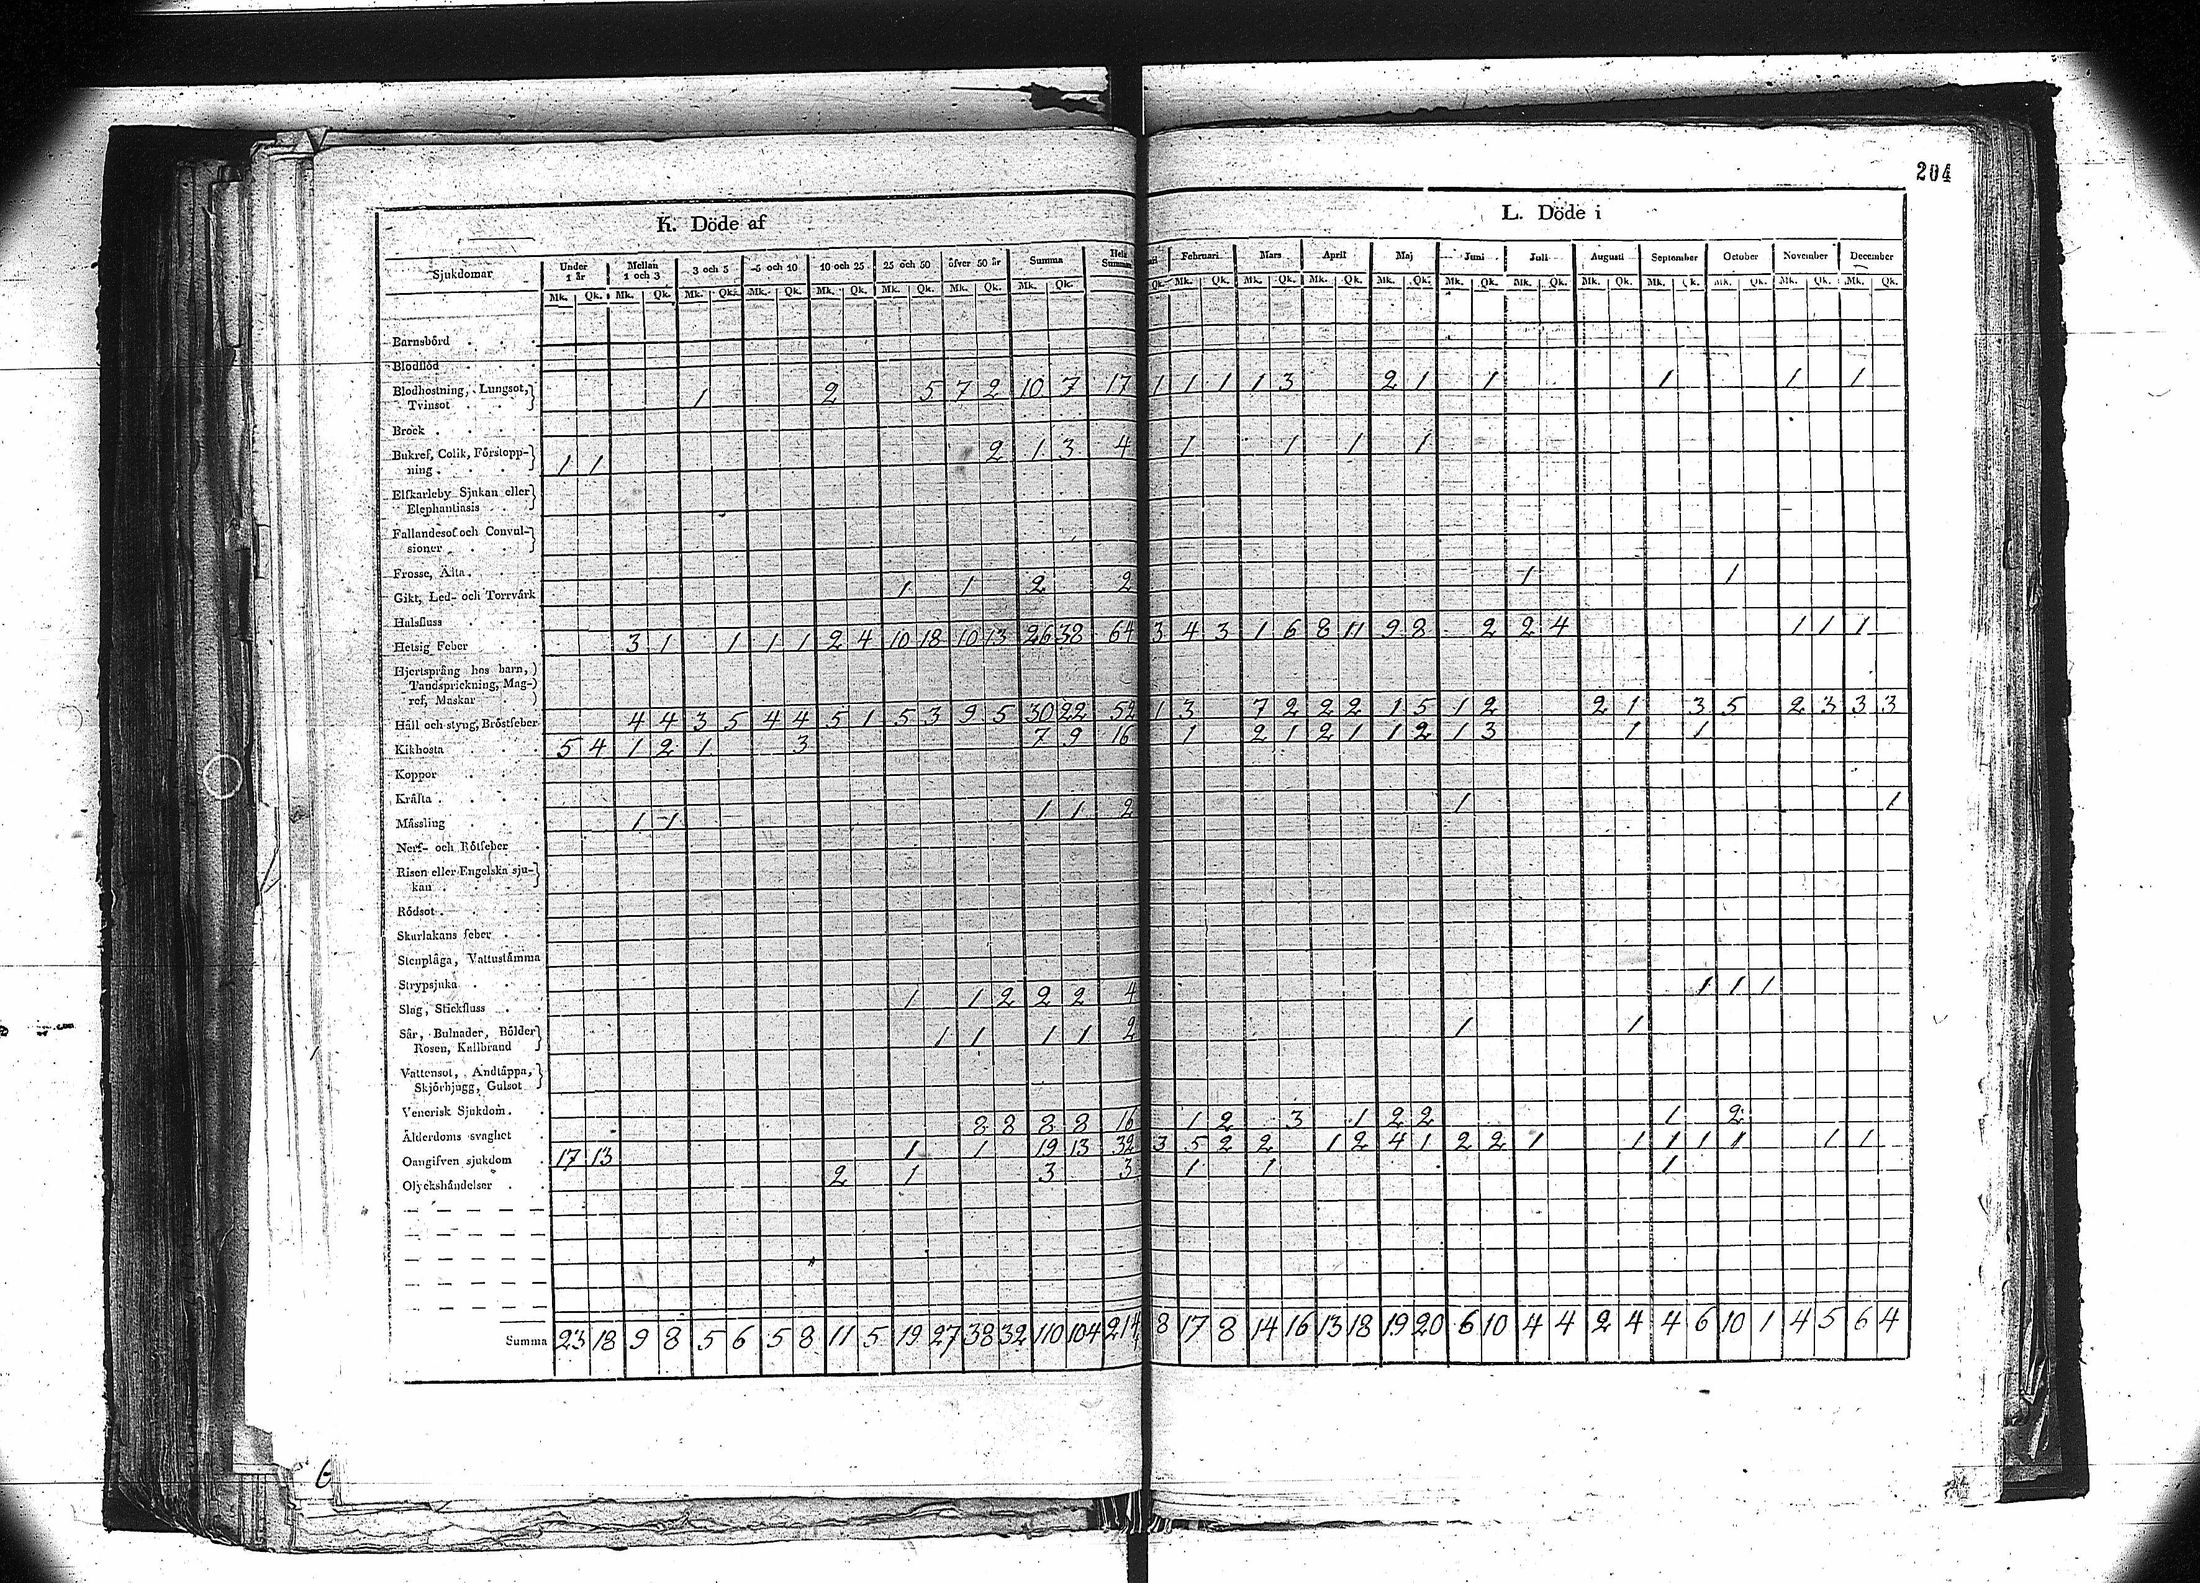 204
K. Döde af
L. Döde i
Sjukdomar Under 1 år Mellan 1 och 3 3 och 5 5 och 10 10 och 25 25 och 50 öfver 50 år Summa Hela Summan
Februari Mars April Maj Juni Juli Augusti September October November December
Mk. Qk. Mk. Qk. Mk. Qk. Mk. Qk. Mk. Qk. Mk. Qk. Mk. Qk. Mk. Qk.
Qk. Mk. Qk. Mk. Qk. Mk. Qk. Mk. Qk. Mk. Qk. Mk. Qk. Mk. Qk. Mk. Qk. Mk. Qk. Mk. Qk. Mk. Qk.
Barnsbörd . . .
Blodflöd . . .
Blodhostning, Lungsot, Tvinsot . . . 1 2 5 7 2 10 7 17 1 1 1 1 3 2 1 1 1 1 1
Brock . . . .
Bukref, Colik, Förstoppning . . . 1 1 2 1 3 4 1 1 1 1
Elfkarleby Sjukan eller Elephantiasis . .
Fallandesot och Convulsioner . . .
Frosse, Älta . . .
Gikt, Led- och Torrvärk 1 1 2 2 1 1
Halsfluss . . .
Hetsig Feber . . 3 1 1 1 1 2 4 10 18 10 13 26 38 64 3 4 3 1 6 8 11 9 8 2 2 4 1 1 1
Hjertsprång hos barn, Tandsprickning, Magref, Maskar .
Håll och styng, Bröstfeber 4 4 3 5 4 4 5 1 5 3 9 5 30 22 52 1 3 7 2 2 2 1 5 1 2 2 1 3 5 2 3 3 3
Kikhosta . . . 5 4 1 2 1 3 7 9 16 1 2 1 2 1 1 2 1 3 1 1
Koppor . . .
Kräfta . . . .
Mässling . . . 1 1 1 1 2 1 1
Nerf- och Rötfeber .
Risen eller Engelska sjukan . . .
Rödsot . . . .
Skarlakans feber . .
Stenplåga, Vattustämma
Strypsjuka . . .
Slag, Stickfluss . . 1 1 2 2 2 4 1 1 1
Sår, Bulnader, Bölder Rosen, Kallbrand 1 1 1 1 2 1 1
Vattensot, Andtäppa, Skjörbjugg, Gulsot
Venerisk Sjukdom . .
Ålderdoms svaghet . 8 8 8 8 16 1 2 3 1 2 2 1 2
Oangifven sjukdom . 17 13 1 1 19 13 32 3 5 2 2 1 2 4 1 2 2 1 1 1 1 1 1 1
Olyckshändelser . . 2 1 3 3 1 1 1
Summa 23 18 9 8 5 6 5 8 11 5 19 27 38 32 110 104 214 8 17 8 14 16 13 18 19 20 6 10 4 4 2 4 4 6 10 1 4 5 6 4